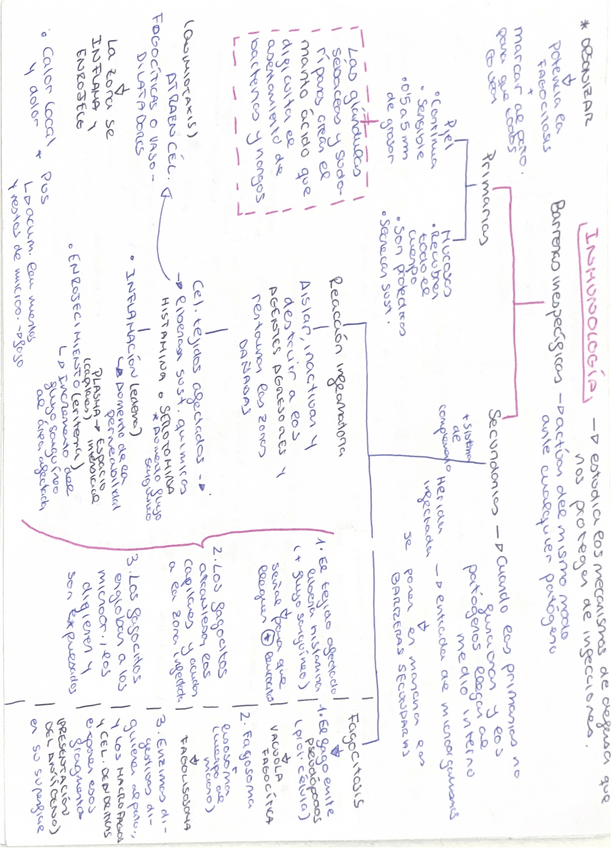 INMUNOLOGÍA
→ estudia los mecanismos de defensa que
nos protegen de infecciones.
Barreras inespecíficas → actúan del mismo modo
ante cualquier patógeno
* OPSONIZAR
potencia la
FAGOCITOSIS
+
marcar al pató.
para que todos
lo vean
Primarias
Piel
• Continua
• sensible
• 0'5 a 5 mm
de grosor
Mucosas
• Recubren
todo el
cuerpo
• Son protectoras
• Secretan sust.
Las glándulas
sebáceas y sudo-
ríparas crean el
manto ácido que
dificulta el
asentamiento de
bacterias y hongos
Secundarias → Cuando las primarias no
funcionan y los
patógenos llegan al
medio interno
+ sistema
de
complemento
Herida
infectada → entrada de microorganismos
se ponen en marcha las
BARRERAS SECUNDARIAS
Reacción inflamatoria
Aislar, inactivar y
destruir a los
AGENTES AGRESORES y
restaurar las zonas
DAÑADAS
Cél. tejidos afectados →
→ liberan sust. químicas
HISTAMINA o SEROTONINA
* Aumento flujo
sanguíneo
(QUIMIOTAXIS)
ATRAEN CÉL.
FAGOCÍTICAS o VASO-
DILATADORES
La zona se
INFLAMA y
ENROJECE
• INFLAMACIÓN (edema)
↳ Aumento de la
permeabilidad
PLASMA → ESPACIO
(capilares) intersticial
• ENROJECIMIENTO (eritema)
↳ Incremento del
flujo sanguíneo
al área afectada
• Calor local
y dolor
+ Pus
↳ acum. leu muertos
y restos de micro.
1. El tejido afectado
libera histamina
(+ flujo sanguíneo)
señal para que
lleguen ⊕ leucocitos
2. Los fagocitos
atraviesan los
capilares y acuden
a la zona infectada
3. Los fagocitos
engloban a los
microor., los
digieren y
son expulsados
Fagocitosis
1. El fago emite
PSEUDÓPODOS
VACUOLA
FAGOCÍTICA
2. Fagosoma
+
lisosoma
FAGOLISOSOMA
3. Enzimas di-
gestivos di-
gieren al pató.,
y los MACRÓFAGOS
y CÉL. DENDRÍTICAS
exponen esos
fragmentos
(PRESENTACIÓN
DEL ANTÍGENO)
en su superficie